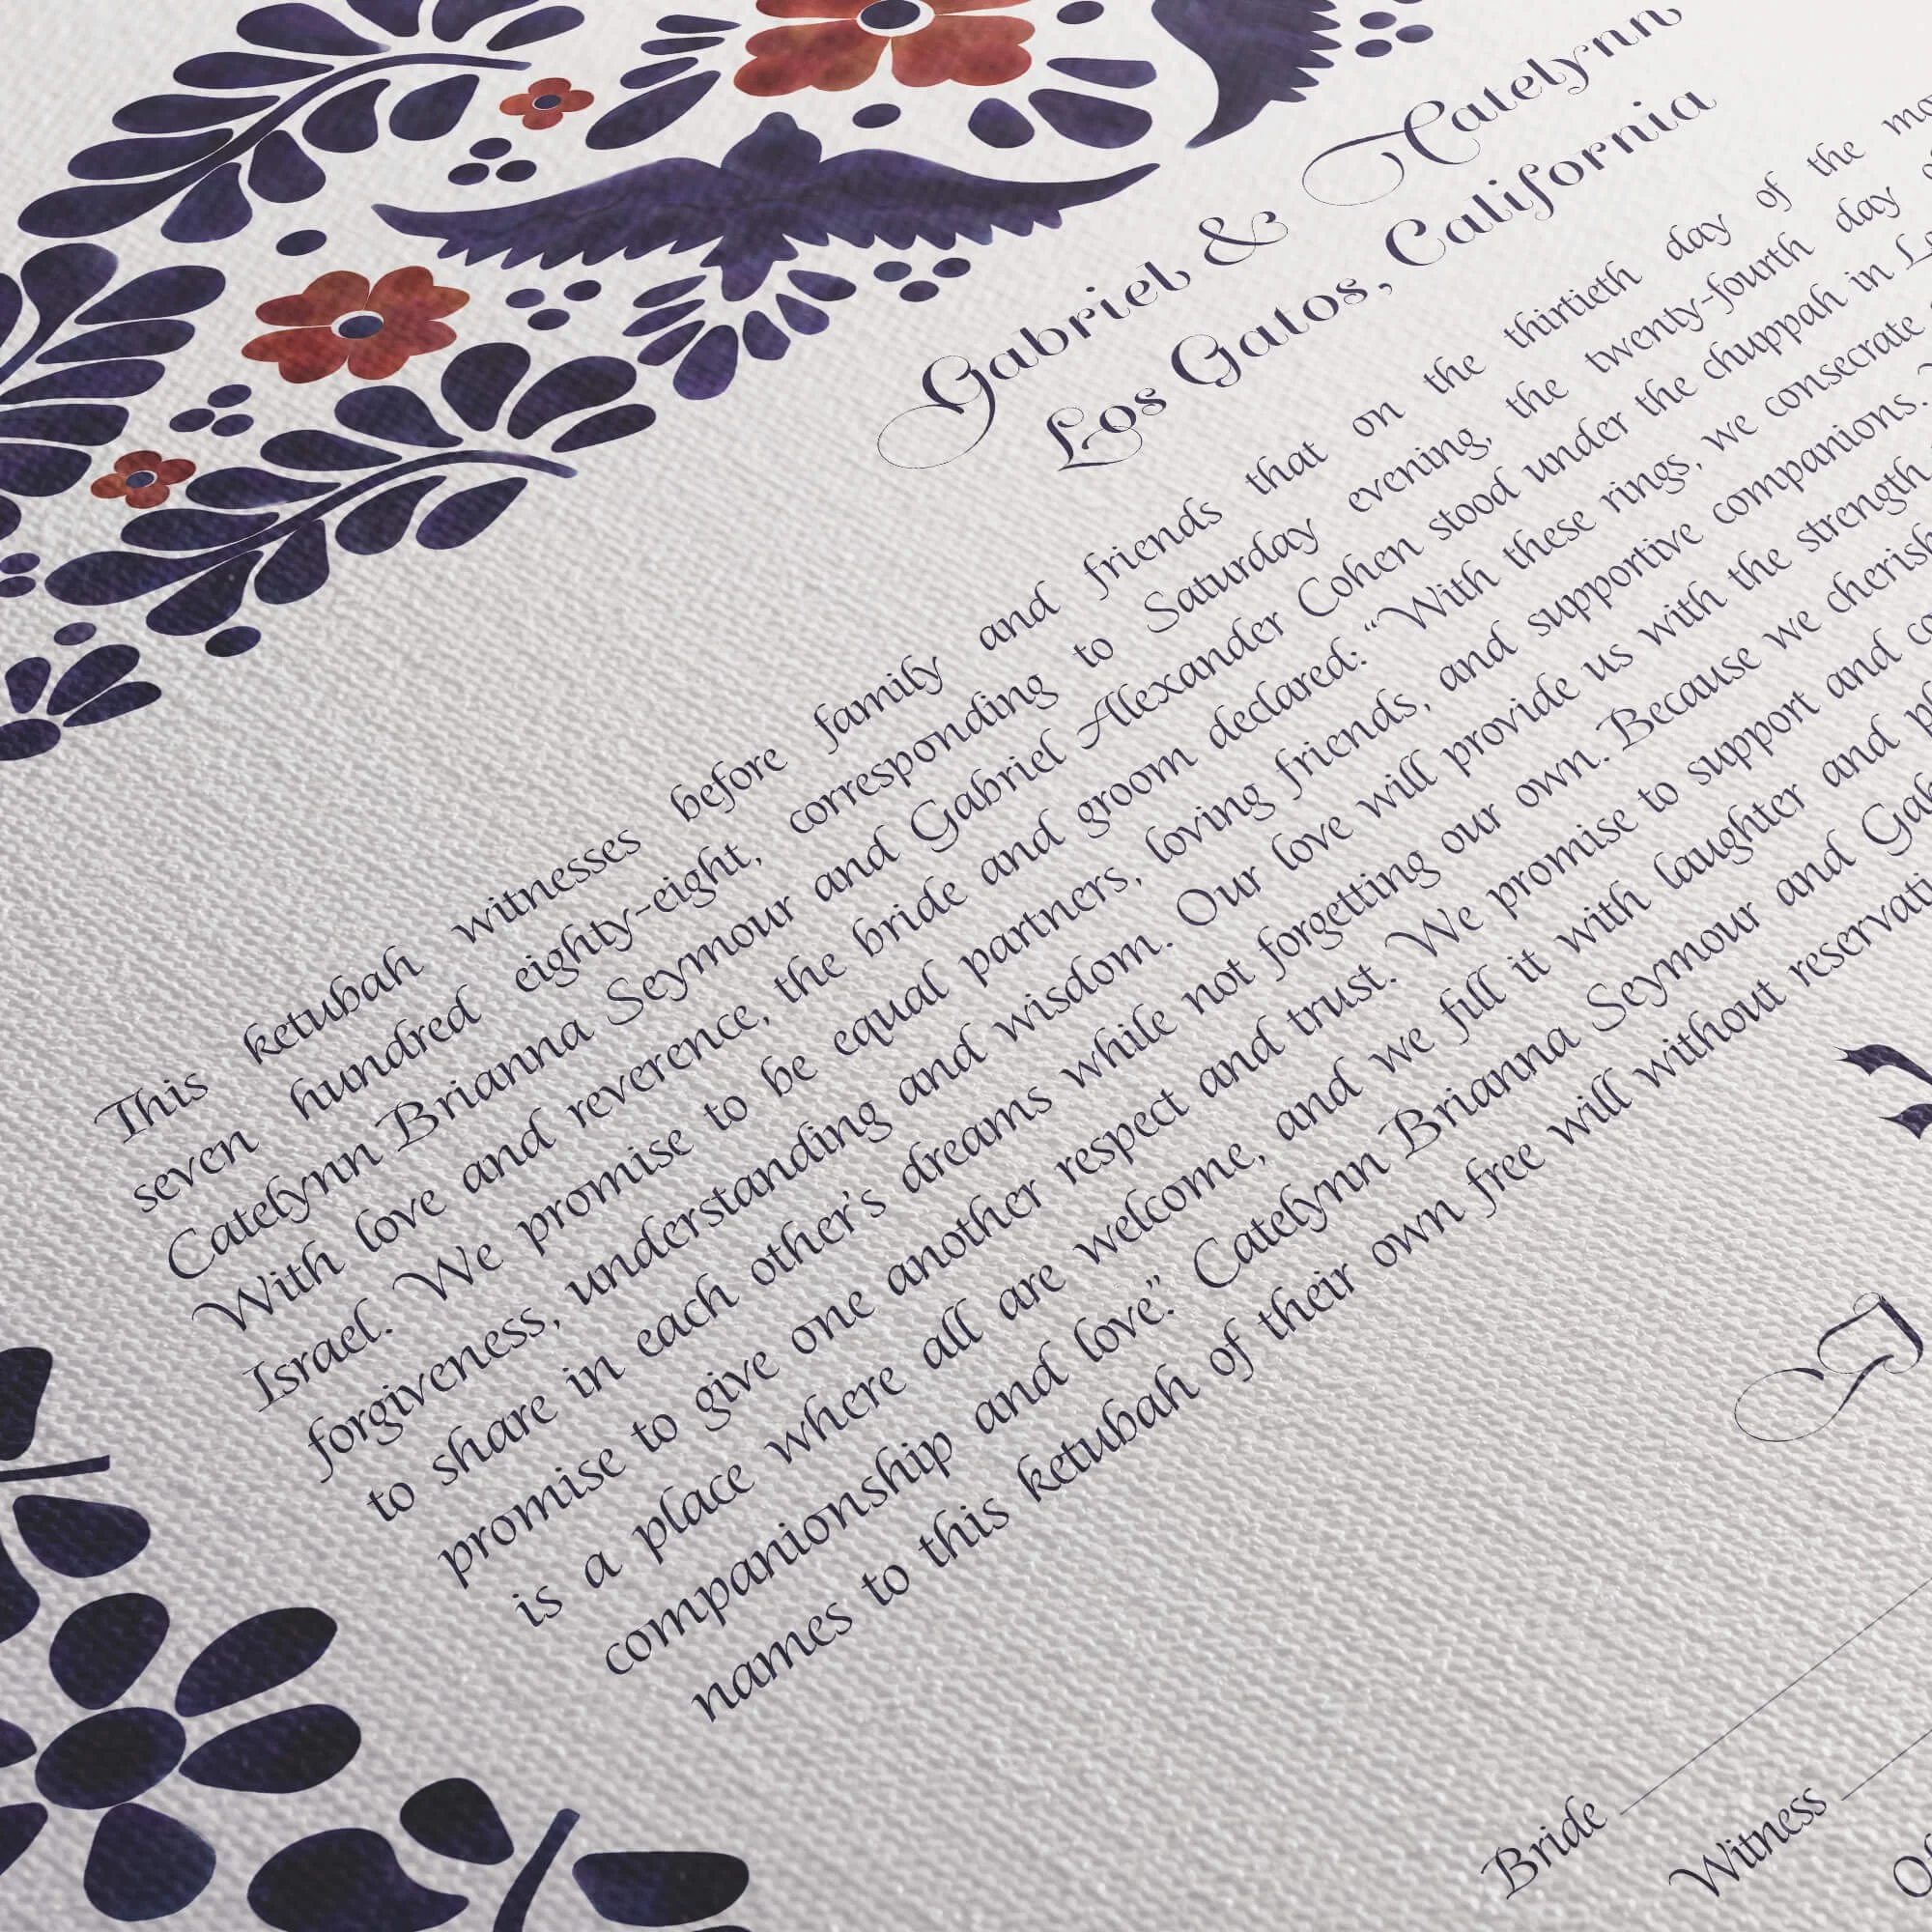 Gabriel & Catelynn
Los Gatos, California
This ketubah witnesses before family and friends that on the thirtieth day of the
seven hundred eighty-eight, corresponding to Saturday evening, the twenty-fourth day
Catelynn Brianna Seymour and Gabriel Alexander Cohen stood under the chuppah in
With love and reverence, the bride and groom declared: “With these rings, we consecrate
Israel. We promise to be equal partners, loving friends, and supportive companions.
forgiveness, understanding and wisdom. Our love will provide us with the strength
to share in each other's dreams while not forgetting our own. Because we cherish
promise to give one another respect and trust. We promise to support and
is a place where all are welcome, and we fill it with laughter and
companionship and love.” Catelynn Brianna Seymour and
names to this ketubah of their own free will without
Bride
Witness